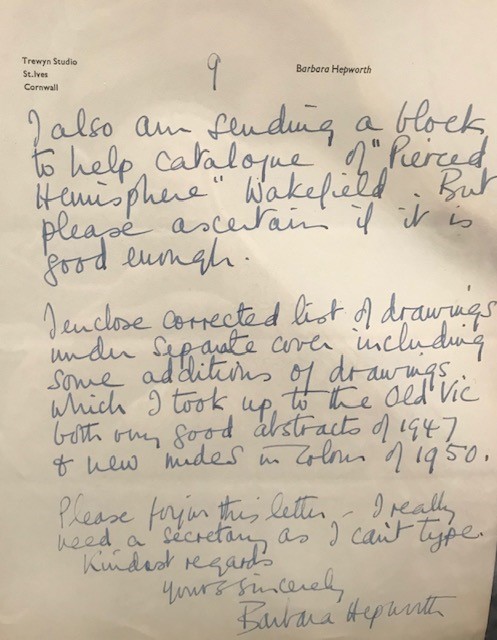 Trewyn Studio
St.Ives
Cornwall
9
Barbara Hepworth
I also am sending a block
to help catalogue of "Pierced
Hemisphere" Wakefield. But
please ascertain if it is
good enough.
I enclose corrected list of drawings
under separate cover including
some additions of drawings
which I took up to the Old Vic
both very good abstracts of 1947
& new nudes in colour of 1950.
Please forgive this letter – I really
need a secretary as I can't type.
Kindest regards
yours sincerely
Barbara Hepworth